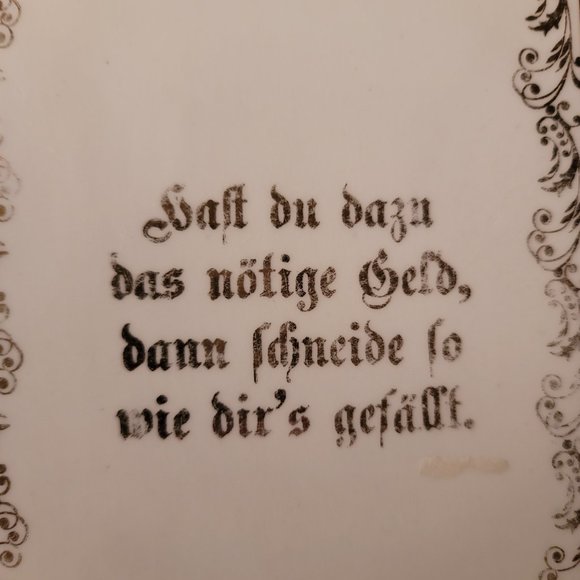 Hast du dazu
das nötige Geld,
dann schneide so
wie dir's gefällt.